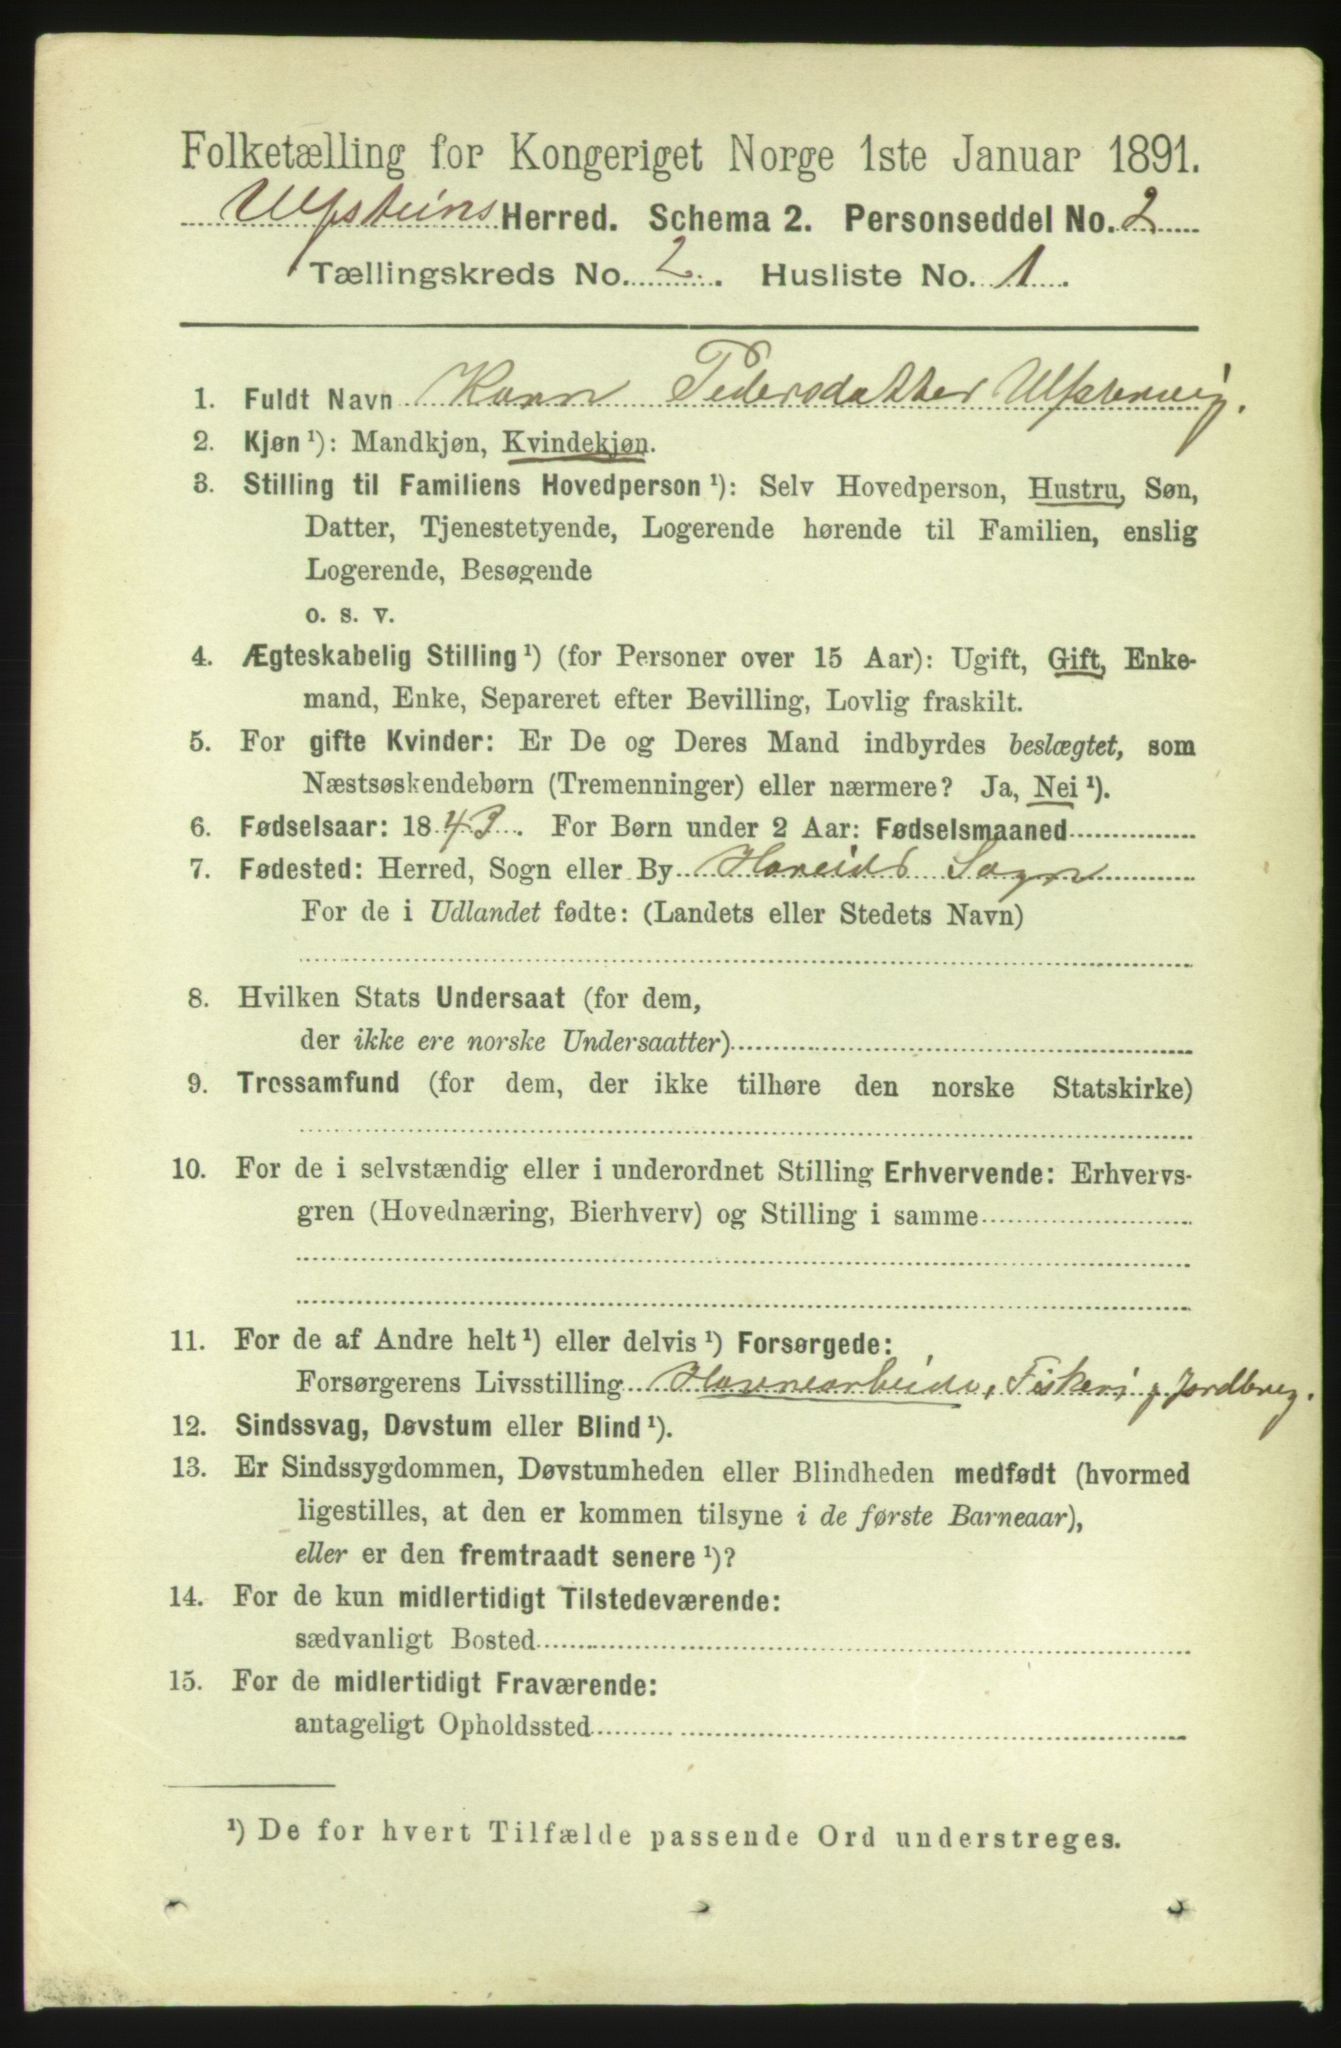 Folketælling for Kongeriget Norge 1ste Januar 1891.
Ulfsteins Herred. Schema 2. Personseddel No. 2
Tællingskreds No. 2. Husliste No. 1.
1. Fuldt Navn Karn Pedersdatter Ulfstenvig.
2. Kjøn ¹): Mandkjøn, Kvindekjøn.
3. Stilling til Familiens Hovedperson ¹): Selv Hovedperson, Hustru, Søn,
Datter, Tjenestetyende, Logerende hørende til Familien, enslig
Logerende, Besøgende
o. s. v.
4. Ægteskabelig Stilling ¹) (for Personer over 15 Aar): Ugift, Gift, Enke-
mand, Enke, Separeret efter Bevilling, Lovlig fraskilt.
5. For gifte Kvinder: Er De og Deres Mand indbyrdes beslægtet, som
Næstsøskendebørn (Tremenninger) eller nærmere? Ja, Nei ¹).
6. Fødselsaar: 1843. For Børn under 2 Aar: Fødselsmaaned
7. Fødested: Herred, Sogn eller By Hareids Sogn
For de i Udlandet fødte: (Landets eller Stedets Navn)
8. Hvilken Stats Undersaat (for dem,
der ikke ere norske Undersaatter)
9. Trossamfund (for dem, der ikke tilhøre den norske Statskirke)
10. For de i selvstændig eller i underordnet Stilling Erhvervende: Erhvervs-
gren (Hovednæring, Bierhverv) og Stilling i samme
11. For de af Andre helt ¹) eller delvis ¹) Forsørgede:
Forsørgerens Livsstilling Havnearbeide, Fiskeri, Jordbrug.
12. Sindssvag, Døvstum eller Blind ¹).
13. Er Sindssygdommen, Døvstumheden eller Blindheden medfødt (hvormed
ligestilles, at den er kommen tilsyne i de første Barneaar),
eller er den fremtraadt senere ¹)?
14. For de kun midlertidigt Tilstedeværende:
sædvanligt Bosted
15. For de midlertidigt Fraværende:
antageligt Opholdssted
¹) De for hvert Tilfælde passende Ord understreges.